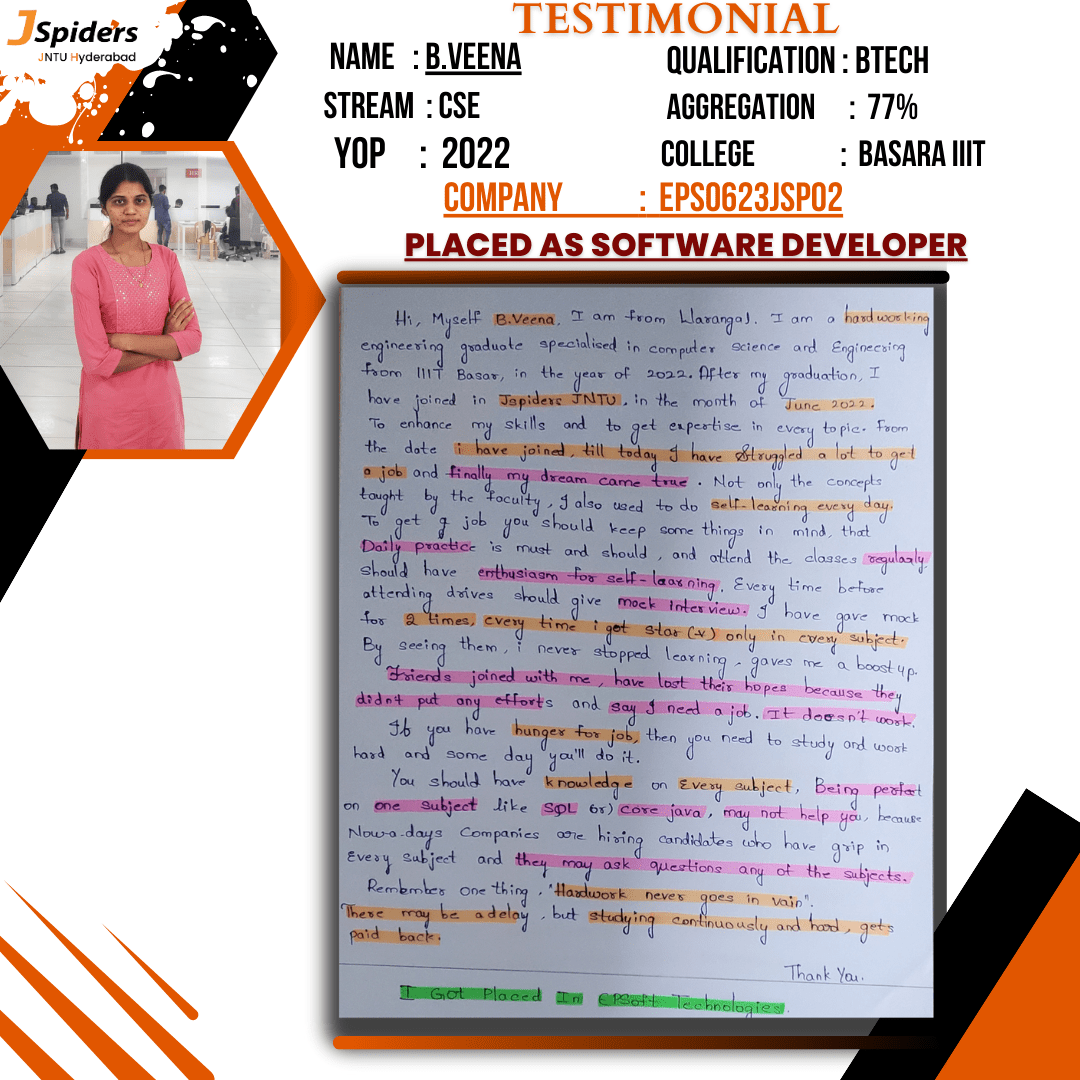 JSpiders
JNTU Hyderabad
TESTIMONIAL
NAME : B.VEENA
QUALIFICATION : BTECH
STREAM : CSE
AGGREGATION : 77%
YOP : 2022
COLLEGE : BASARA IIIT
COMPANY : EPS0623JSP02
PLACED AS SOFTWARE DEVELOPER
Hi, Myself B.Veena, I am from Warangal. I am a hardworking
engineering graduate specialised in computer science and Engineering
from IIIT Basar, in the year of 2022. After my graduation, I
have joined in Jspiders JNTU, in the month of June 2022.
To enhance my skills and to get expertise in every topic. From
the date i have joined, till today I have Struggled a lot to get
a job and finally my dream came true. Not only the concepts
taught by the faculty, I also used to do self-learning every day.
To get a job you should keep some things in mind, that
Daily practice is must and should, and attend the classes regularly.
Should have enthusiasm for self-learning. Every time before
attending drives should give mock interview. I have gave mock
for 2 times, every time i got star (*) only in every subject.
By seeing them, i never stopped learning, gaves me a boost up.
Friends joined with me, have lost their hopes because they
didn't put any efforts and say I need a job. It doesn't work.
If you have hunger for job, then you need to study and work
hard and some day you'll do it.
You should have knowledge on Every subject, Being perfect
on one subject like SQL (or) core java, may not help you, because
Now-a-days Companies are hiring candidates who have grip in
Every subject and they may ask questions any of the subjects.
Remember one thing, "Hardwork never goes in vain".
There may be a delay, but studying continuously and hard, gets
paid back.
Thank You.
I Got Placed In EPSoft Technologies.